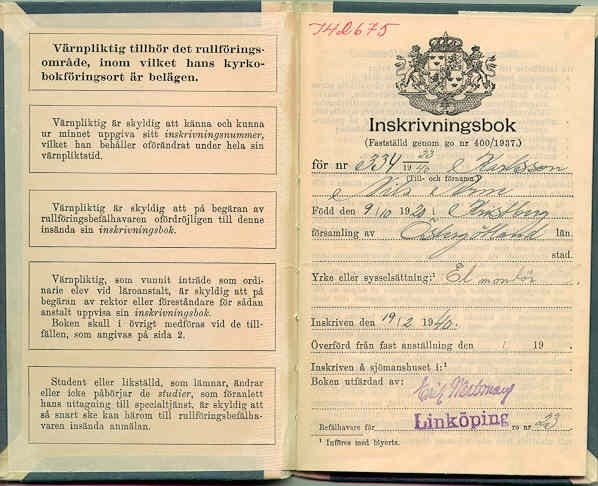 Värnpliktig tillhör det rullförings-
område, inom vilket hans kyrko-
bokföringsort är belägen.
Värnpliktig är skyldig att känna och kunna
ur minnet uppgiva sitt inskrivningsnummer,
vilket han behåller oförändrat under hela sin
värnpliktstid.
Värnpliktig är skyldig att på begäran av
rullföringsbefälhavaren ofördröjligen till denne
insända sin inskrivningsbok.
Värnpliktig, som vunnit inträde som ordi-
narie elev vid läroanstalt, är skyldig att på
begäran av rektor eller föreståndare för sådan
anstalt uppvisa sin inskrivningsbok.
Boken skall i övrigt medföras vid de till-
fällen, som angivas på sida 2.
Student eller likställd, som lämnar, ändrar
eller icke påbörjar de studier, som föranlett
hans uttagning till specialtjänst, är skyldig att
så snart ske kan härom till rullföringsbefälha-
varen insända anmälan.
742675
Inskrivningsbok
(Fastställd genom go nr 400/1937.)
för nr 334 23 1940 Karlsson
(Till- och förnamn)
Nils
Född den 9/10 1920 i
församling av Östergötland län.
stad.
Yrke eller sysselsättning:¹ El montör
Inskriven den 19/2 1940.
Överförd från fast anställning den / 19 .
Inskriven å sjömanshuset i:¹
Boken utfärdad av: Erik
Befälhavare för Linköping ro nr 23
¹ Införes med blyerts.